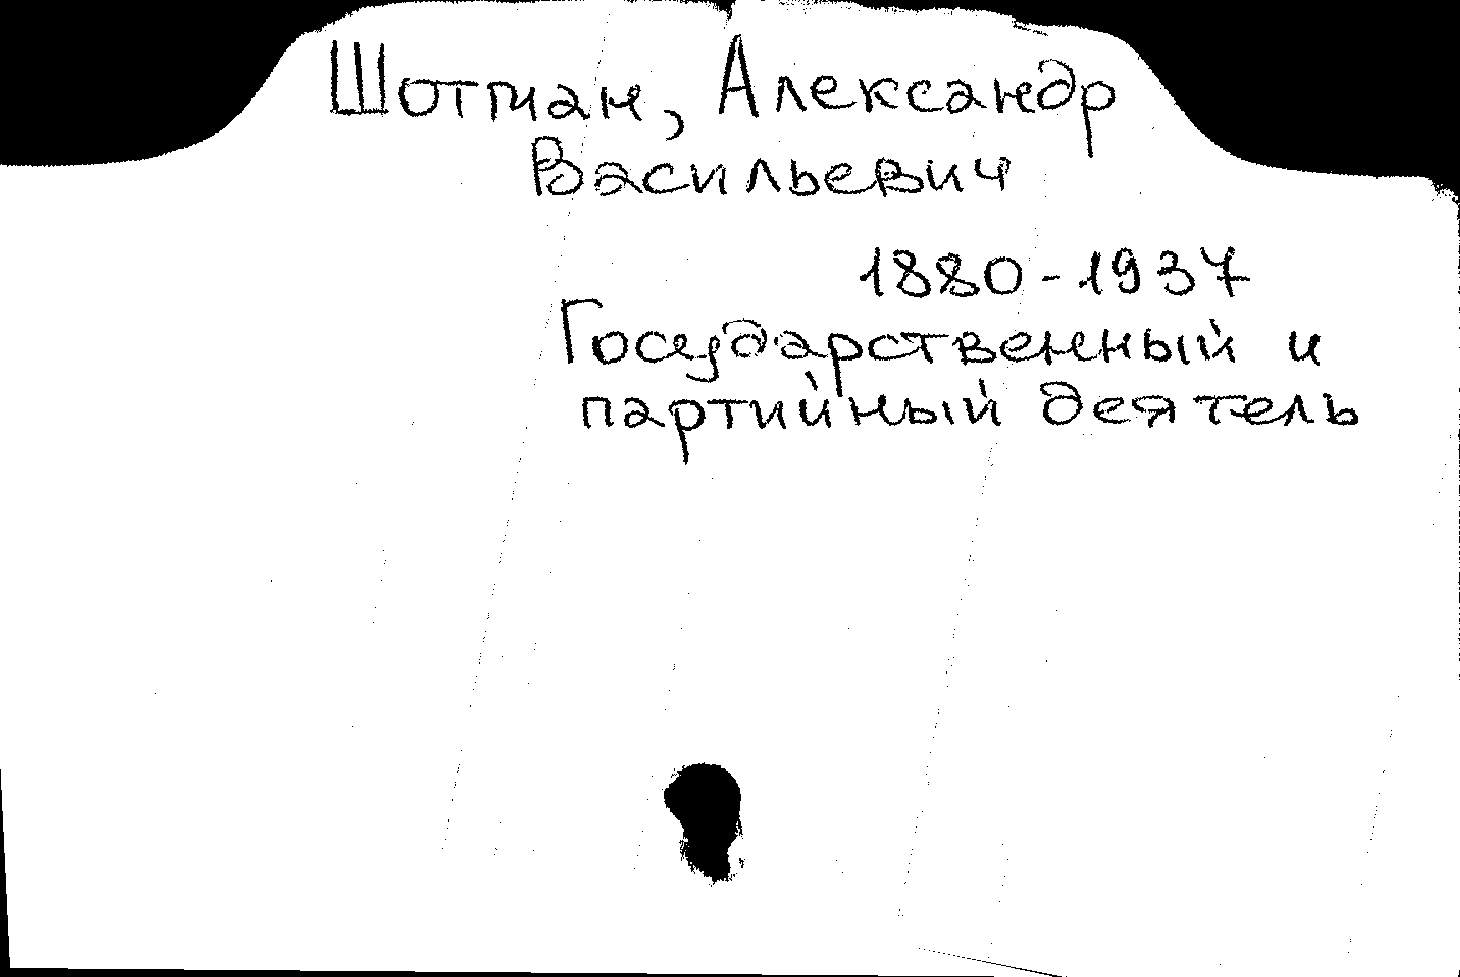 Шотман, Александр
Васильевич
1880-1937
Государственный и
партийный деятель